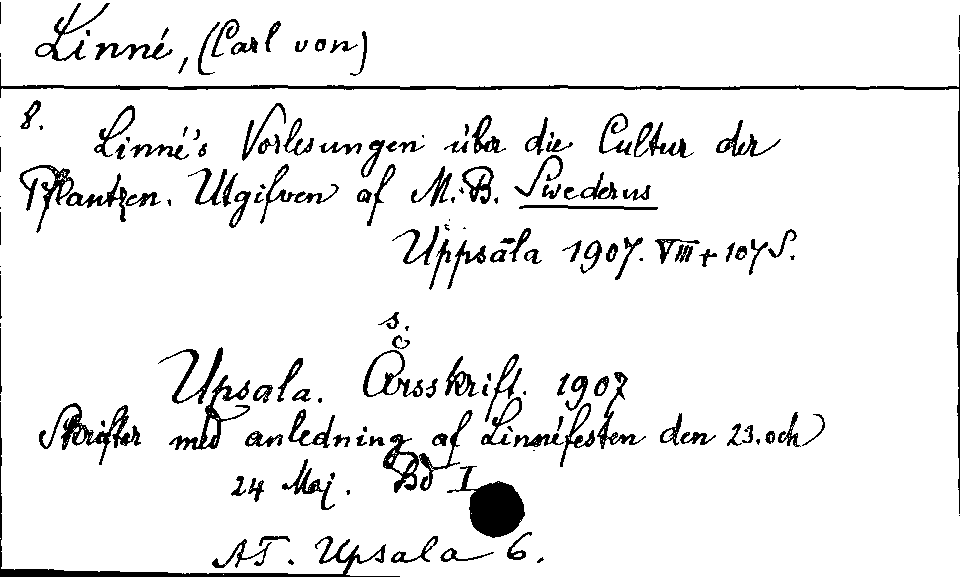 Linné, (Carl von)
8.
Linné's Vorlesungen über die Cultur der
Pflantzen. Utgifven af M. B. Swederus
Uppsala 1907. VIII + 107 S.
s.
Upsala. Årsskrift. 1907
Skrifter med anledning af Linnéfesten den 23. och
24 Maj. Bd I
AT. Upsala 6.